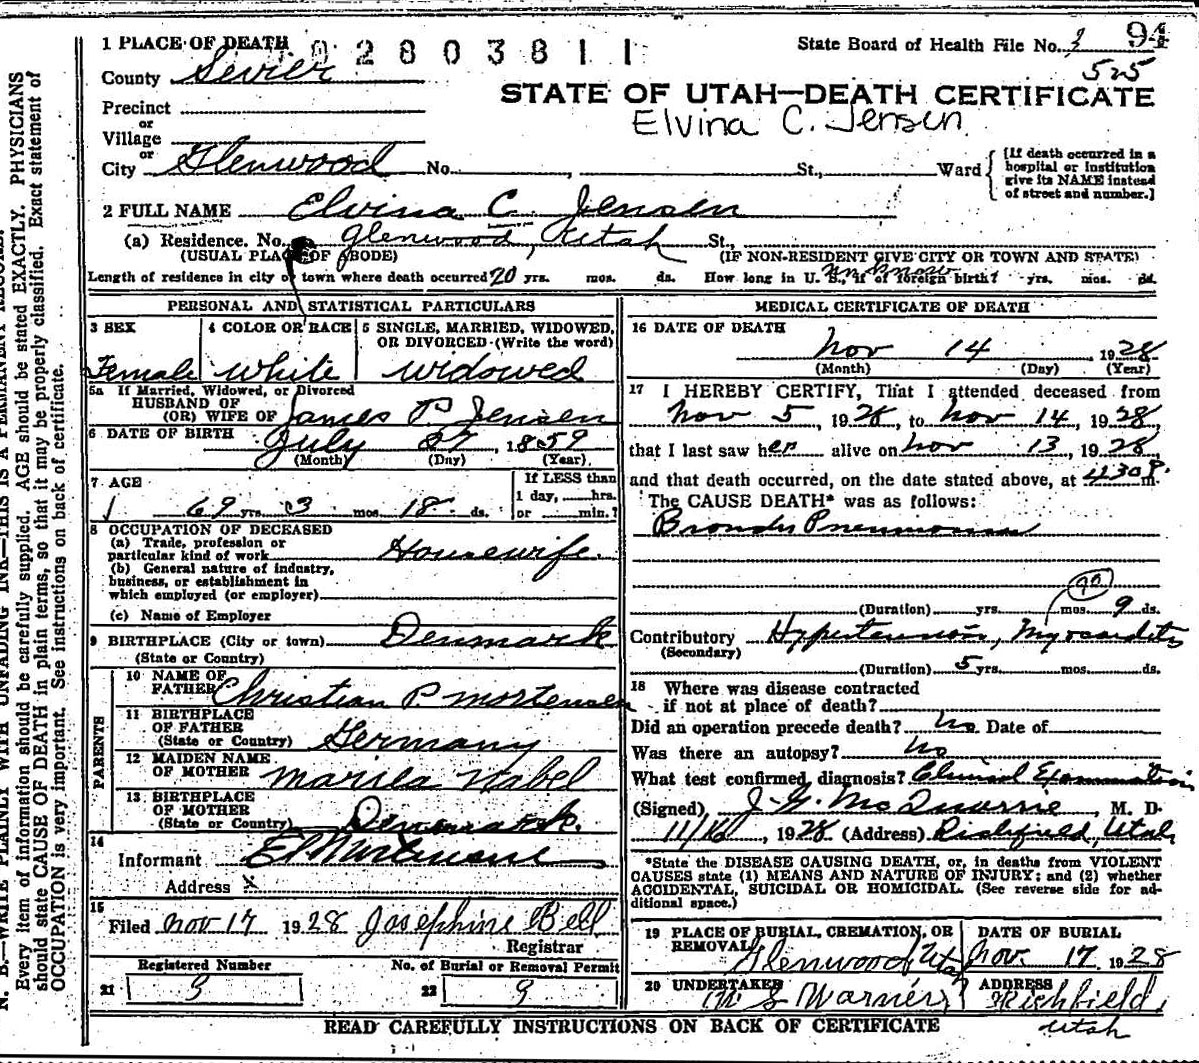 1 PLACE OF DEATH
02803811
State Board of Health File No. 94
525
County Sevier
STATE OF UTAH—DEATH CERTIFICATE
Elvina C. Jensen
Precinct
or
Village
or
City Glenwood No. , St., Ward
[If death occurred in a
hospital or institution
give its NAME instead
of street and number.]
2 FULL NAME Elvina C. Jensen
(a) Residence. No. Glenwood, Utah St.,
(USUAL PLACE OF ABODE) (IF NON-RESIDENT GIVE CITY OR TOWN AND STATE)
Length of residence in city or town where death occurred 20 yrs. mos. ds. How long in U. S., if of foreign birth? unknown yrs. mos. ds.
PERSONAL AND STATISTICAL PARTICULARS
3 SEX
Female
4 COLOR OR RACE
White
5 SINGLE, MARRIED, WIDOWED,
OR DIVORCED (Write the word)
Widowed
5a If Married, Widowed, or Divorced
HUSBAND OF
(OR) WIFE OF James P. Jensen
6 DATE OF BIRTH July 27, 1859
(Month) (Day) (Year)
7 AGE
69 yrs. 3 mos. 18 ds.
If LESS than
1 day, hrs.
or min.?
8 OCCUPATION OF DECEASED
(a) Trade, profession or
particular kind of work Housewife
(b) General nature of industry,
business, or establishment in
which employed (or employer)
(c) Name of Employer
9 BIRTHPLACE (City or town) Denmark
(State or Country)
PARENTS
10 NAME OF
FATHER Christian P Mortensen
11 BIRTHPLACE
OF FATHER
(State or Country) Germany
12 MAIDEN NAME
OF MOTHER
13 BIRTHPLACE
OF MOTHER
(State or Country) Denmark
14
Informant
Address x
15
Filed Nov 17 1928 Josephine Bell
Registrar
Registered Number
21 9
No. of Burial or Removal Permit
22 9
MEDICAL CERTIFICATE OF DEATH
16 DATE OF DEATH
Nov 14, 1928
(Month) (Day) (Year)
17 I HEREBY CERTIFY, That I attended deceased from
Nov 5, 1928, to Nov 14, 1928,
that I last saw her alive on Nov 13, 1928
and that death occurred, on the date stated above, at 430 P.m.
The CAUSE DEATH* was as follows:
Broncho Pneumonia
90
(Duration) yrs. mos. 9 ds.
Contributory Hypertension, Myocarditis
(Secondary)
(Duration) 5 yrs. mos. ds.
18 Where was disease contracted
if not at place of death?
Did an operation precede death? No Date of
Was there an autopsy? No
What test confirmed diagnosis? Clinical Examination
(Signed) J. G. McQuarrie, M. D.
11/16, 1928 (Address) Richfield, Utah
*State the DISEASE CAUSING DEATH, or, in deaths from VIOLENT
CAUSES state (1) MEANS AND NATURE OF INJURY; and (2) whether
ACCIDENTAL, SUICIDAL OR HOMICIDAL. (See reverse side for ad-
ditional space.)
19 PLACE OF BURIAL, CREMATION, OR
REMOVAL Glenwood Utah
DATE OF BURIAL
Nov. 17 1928
20 UNDERTAKER
Warner
ADDRESS
Richfield,
Utah
READ CAREFULLY INSTRUCTIONS ON BACK OF CERTIFICATE
N. B.—WRITE PLAINLY WITH UNFADING INK—THIS IS A PERMANENT RECORD.
Every item of information should be carefully supplied. AGE should be stated EXACTLY. PHYSICIANS
should state CAUSE OF DEATH in plain terms, so that it may be properly classified. Exact statement of
OCCUPATION is very important. See instructions on back of certificate.